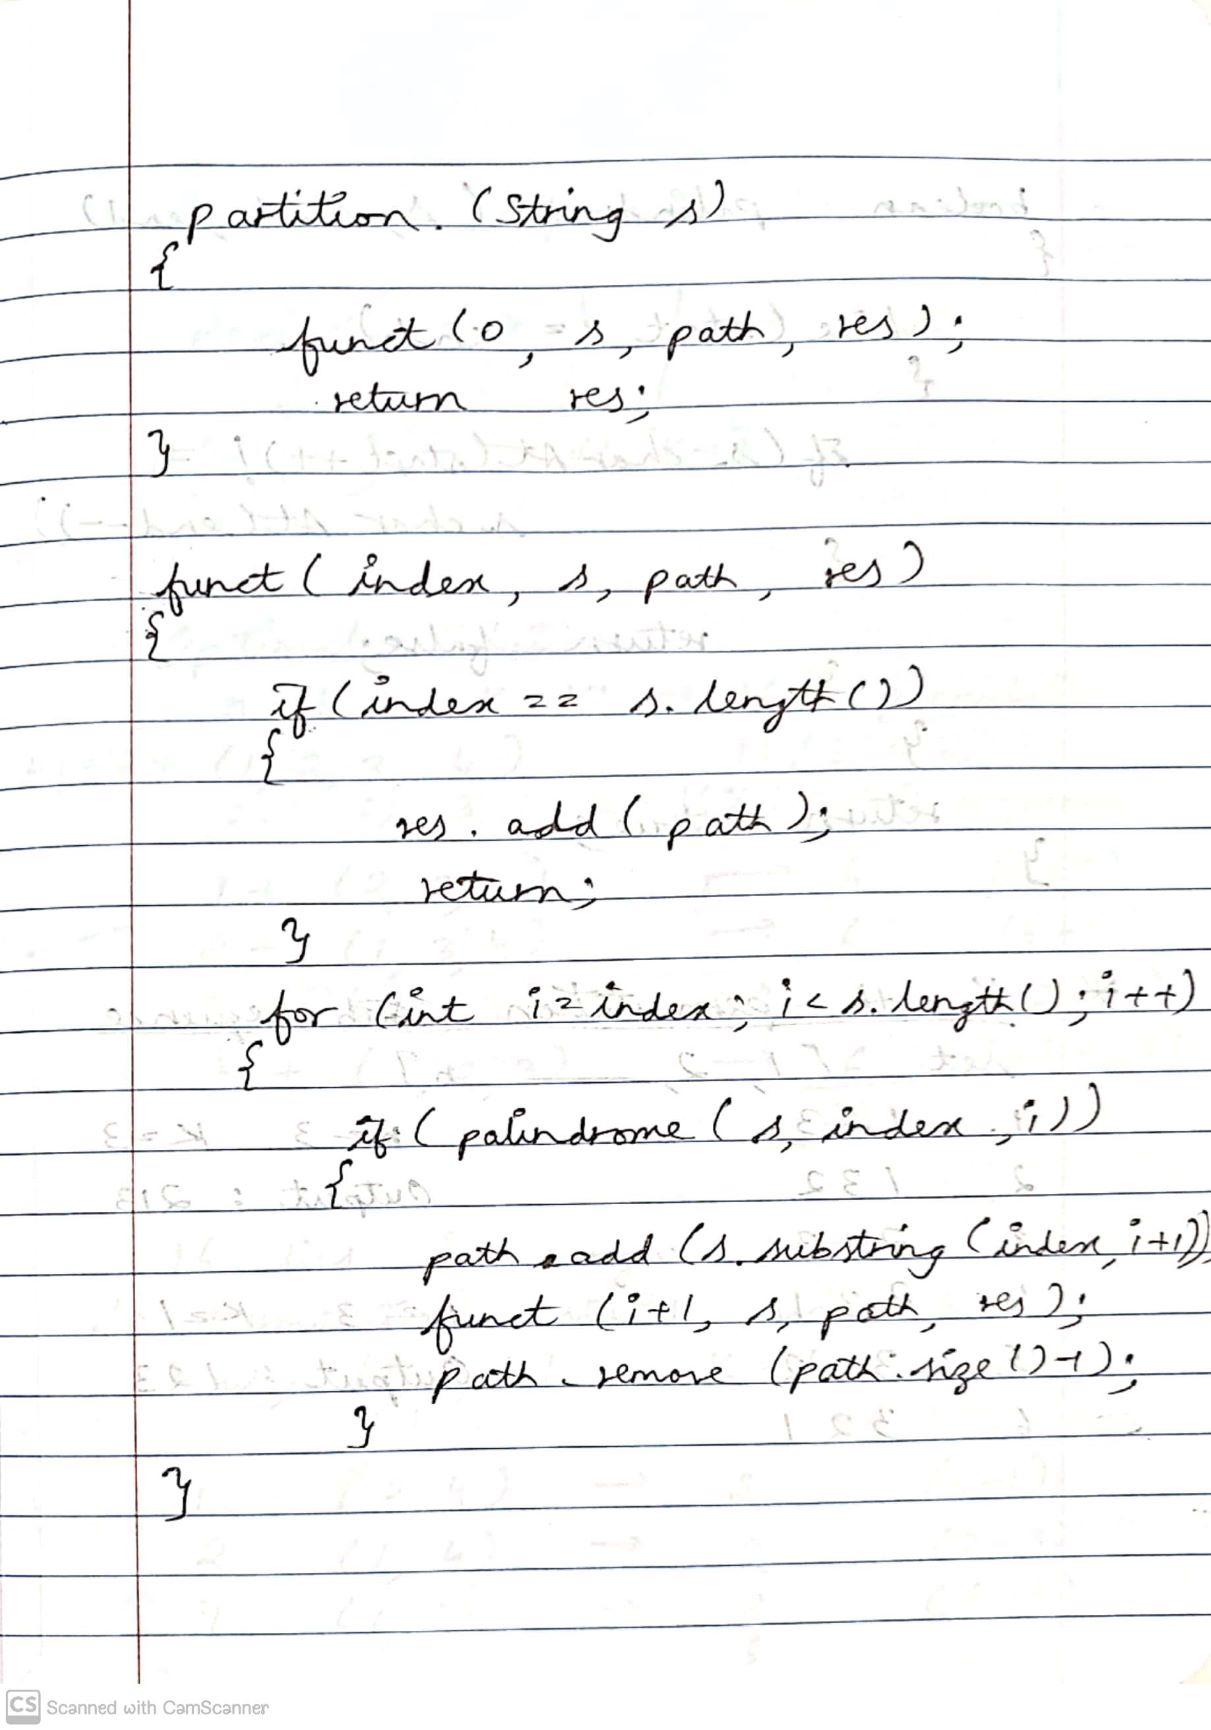 partition (String s)
{
funct (0, s, path, res);
return res;
}
funct ( index, s, path, res)
{
if (index == s. length ())
{
res. add (path);
return;
}
for (int i = index; i < s. length (); i++)
{
if (palindrome (s, index, i))
{
path. add (s. substring (index, i+1))
funct (i+1, s, path, res);
path. remove (path. size ()-1);
}
}
CS Scanned with CamScanner